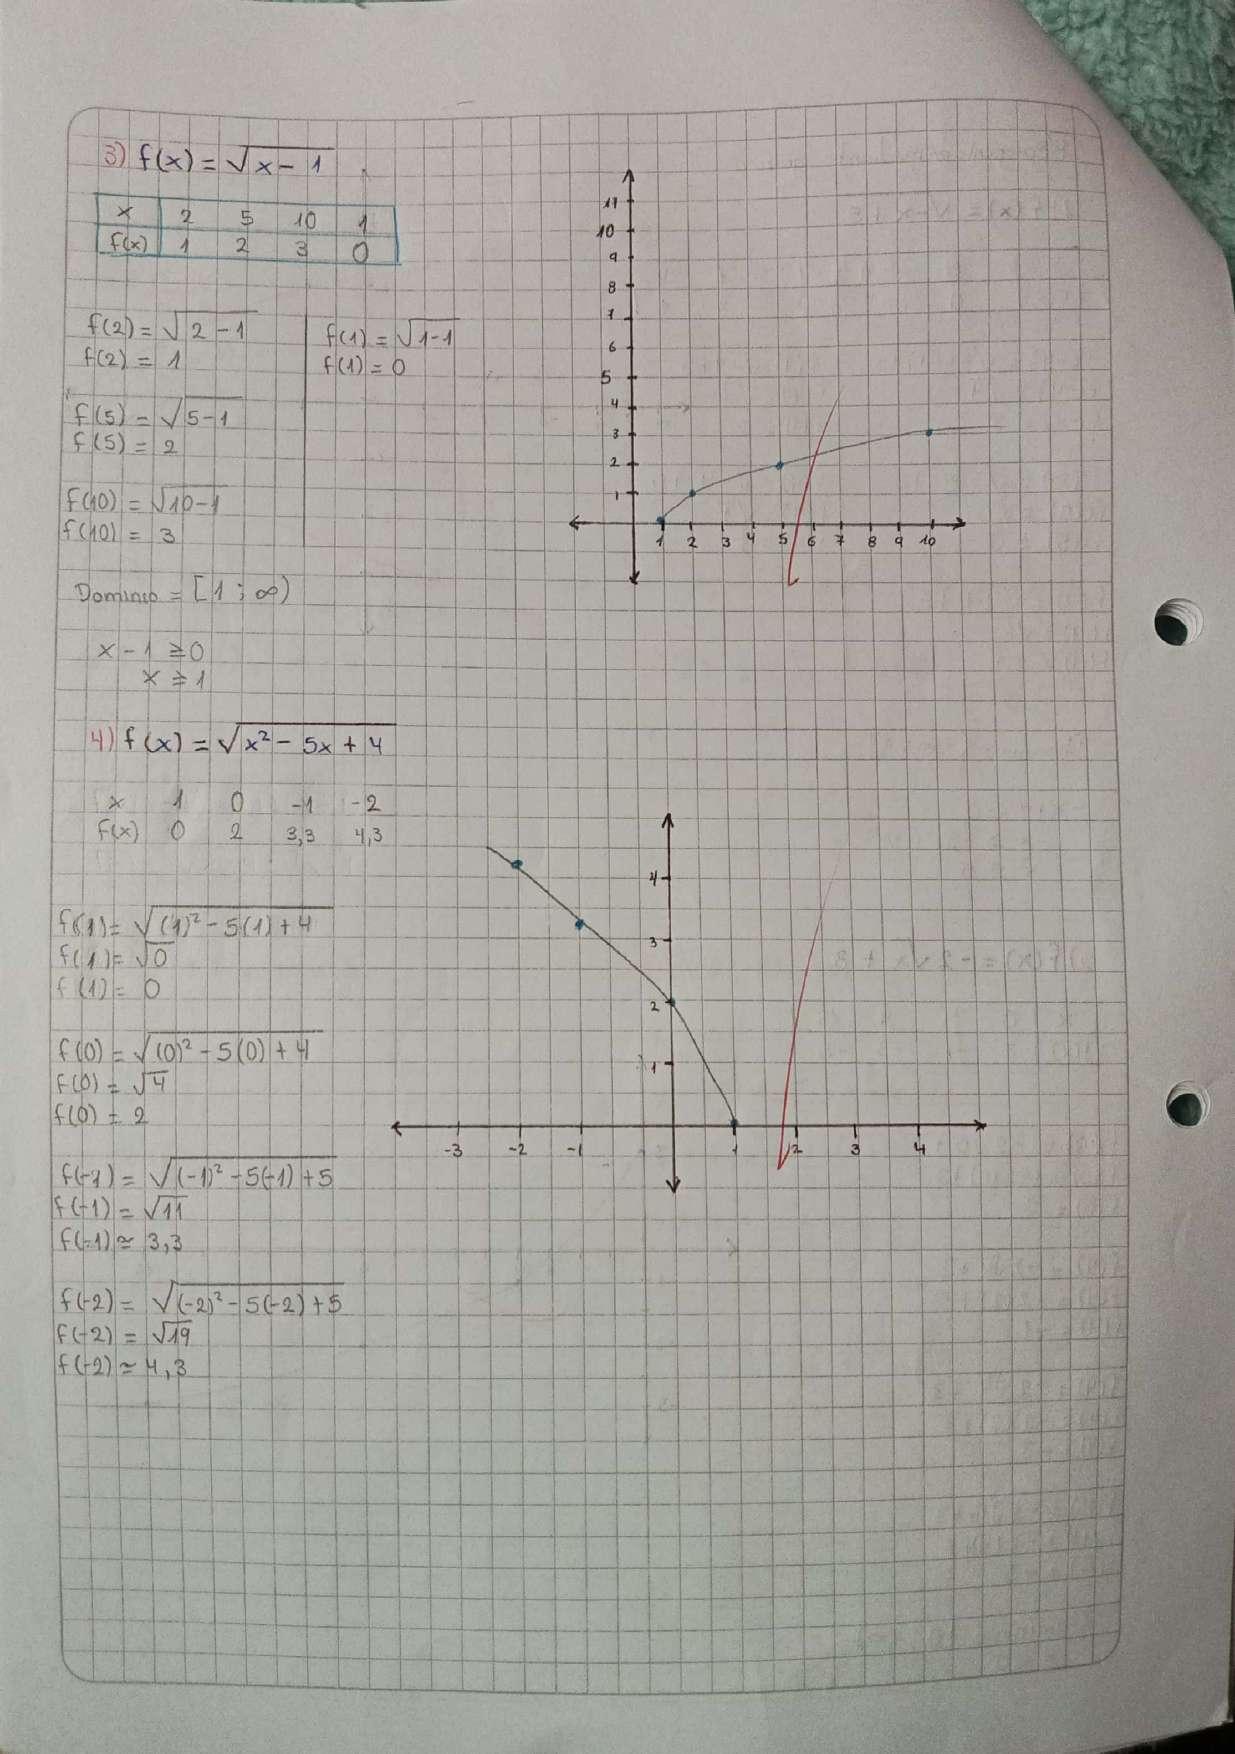 3) f(x) = √x - 1
x 2 5 10 1
f(x) 1 2 3 0
f(2) = √2 - 1
f(2) = 1
f(5) = √5-1
f(5) = 2
f(10) = √10-1
f(10) = 3
f(1) = √1-1
f(1) = 0
Dominio = [1 ; ∞)
x - 1 ⩾ 0
x ⩾ 1
11
10
9
8
7
6
5
4
3
2
1
1 2 3 4 5 6 7 8 9 10
4) f(x) = √x² - 5x + 4
x 1 0 -1 -2
f(x) 0 2 3,3 4,3
f(1) = √(1)² - 5(1) + 4
f(1) = √0
f(1) = 0
f(0) = √(0)² - 5(0) + 4
f(0) = √4
f(0) = 2
f(-1) = √(-1)² - 5(-1) + 5
f(-1) = √11
f(-1) ≃ 3,3
f(-2) = √(-2)² - 5(-2) + 5
f(-2) = √19
f(-2) ≃ 4,3
4
3
2
1
-3 -2 -1 1 2 3 4